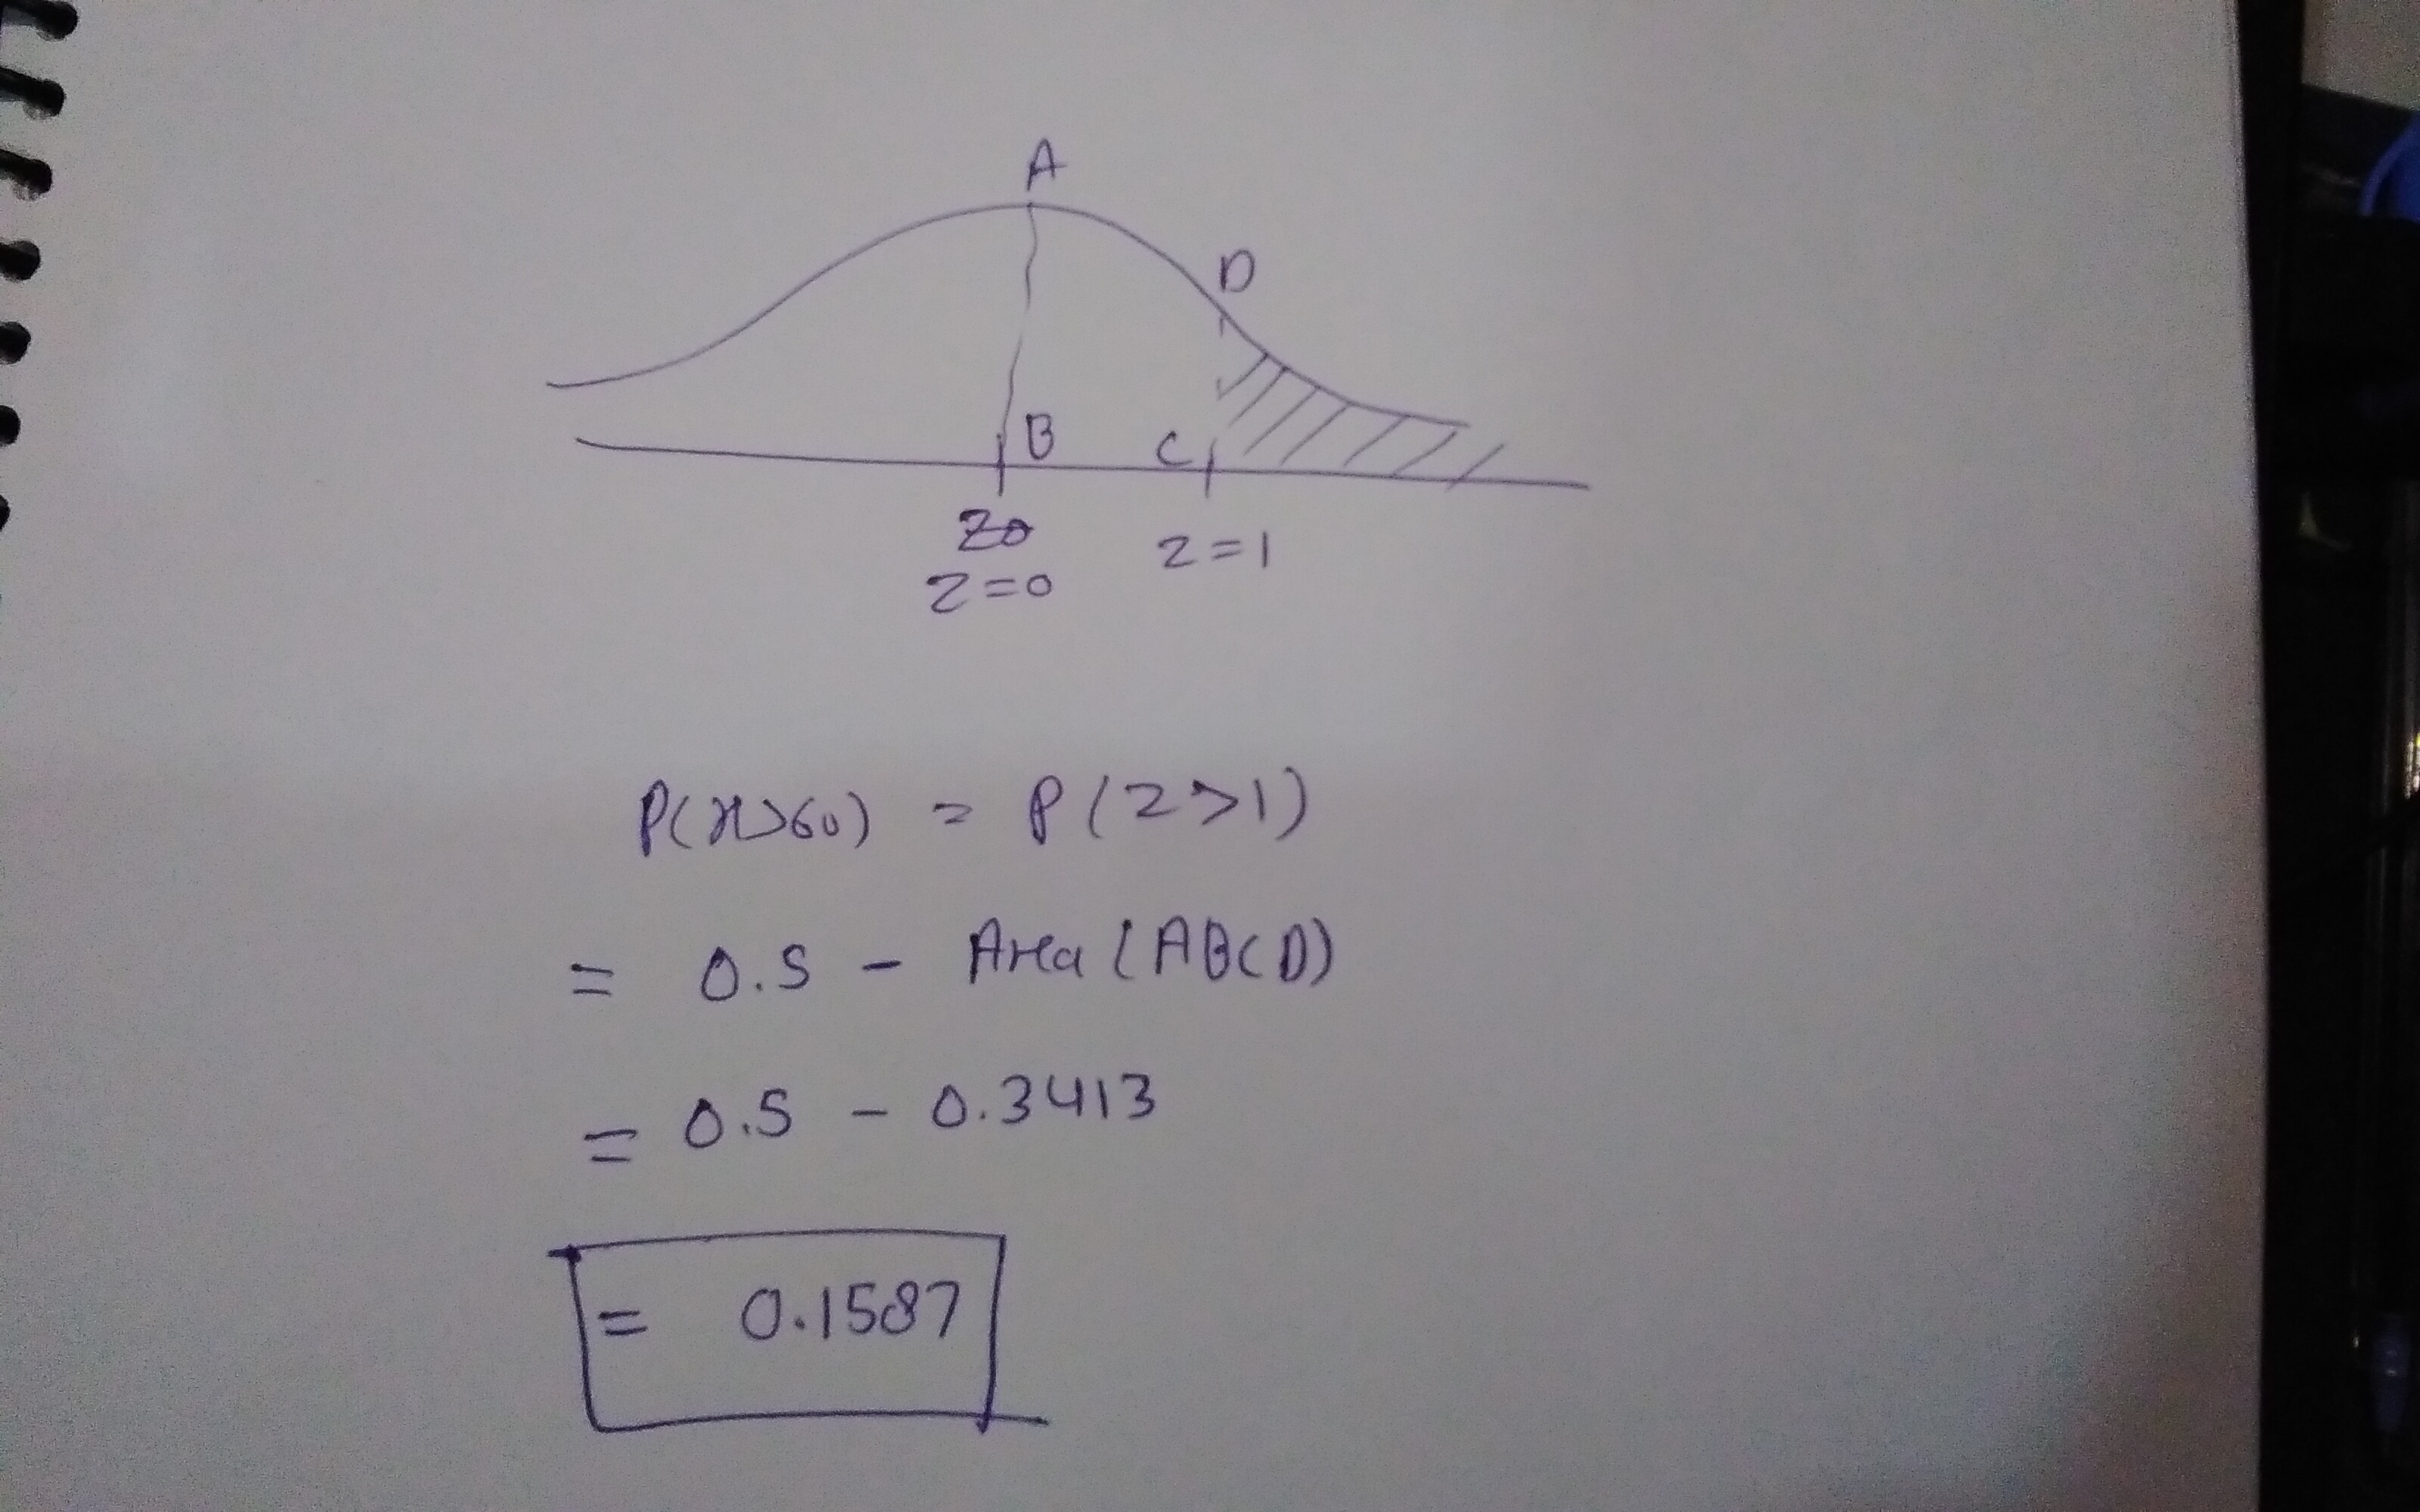 A
D
B
C
Z=0
Z=1
P(x>60) = P(Z>1)
= 0.5 - Area (ABCD)
= 0.5 - 0.3413
= 0.1587